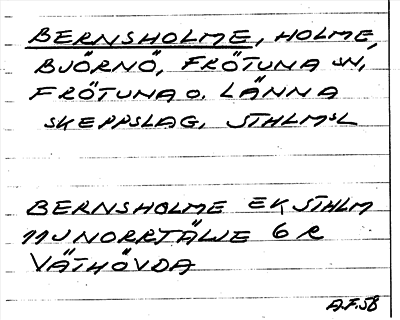 BERNSHOLME, HOLME,
BJÖRNÖ, FRÖTUNA SN,
FRÖTUNA O. LÄNNA
SKEPPSLAG, STHLMSL
BERNSHOLME EK STHLM
11J NORRTÄLJE 6 R
VÄTHÖVDA
A.F. 58